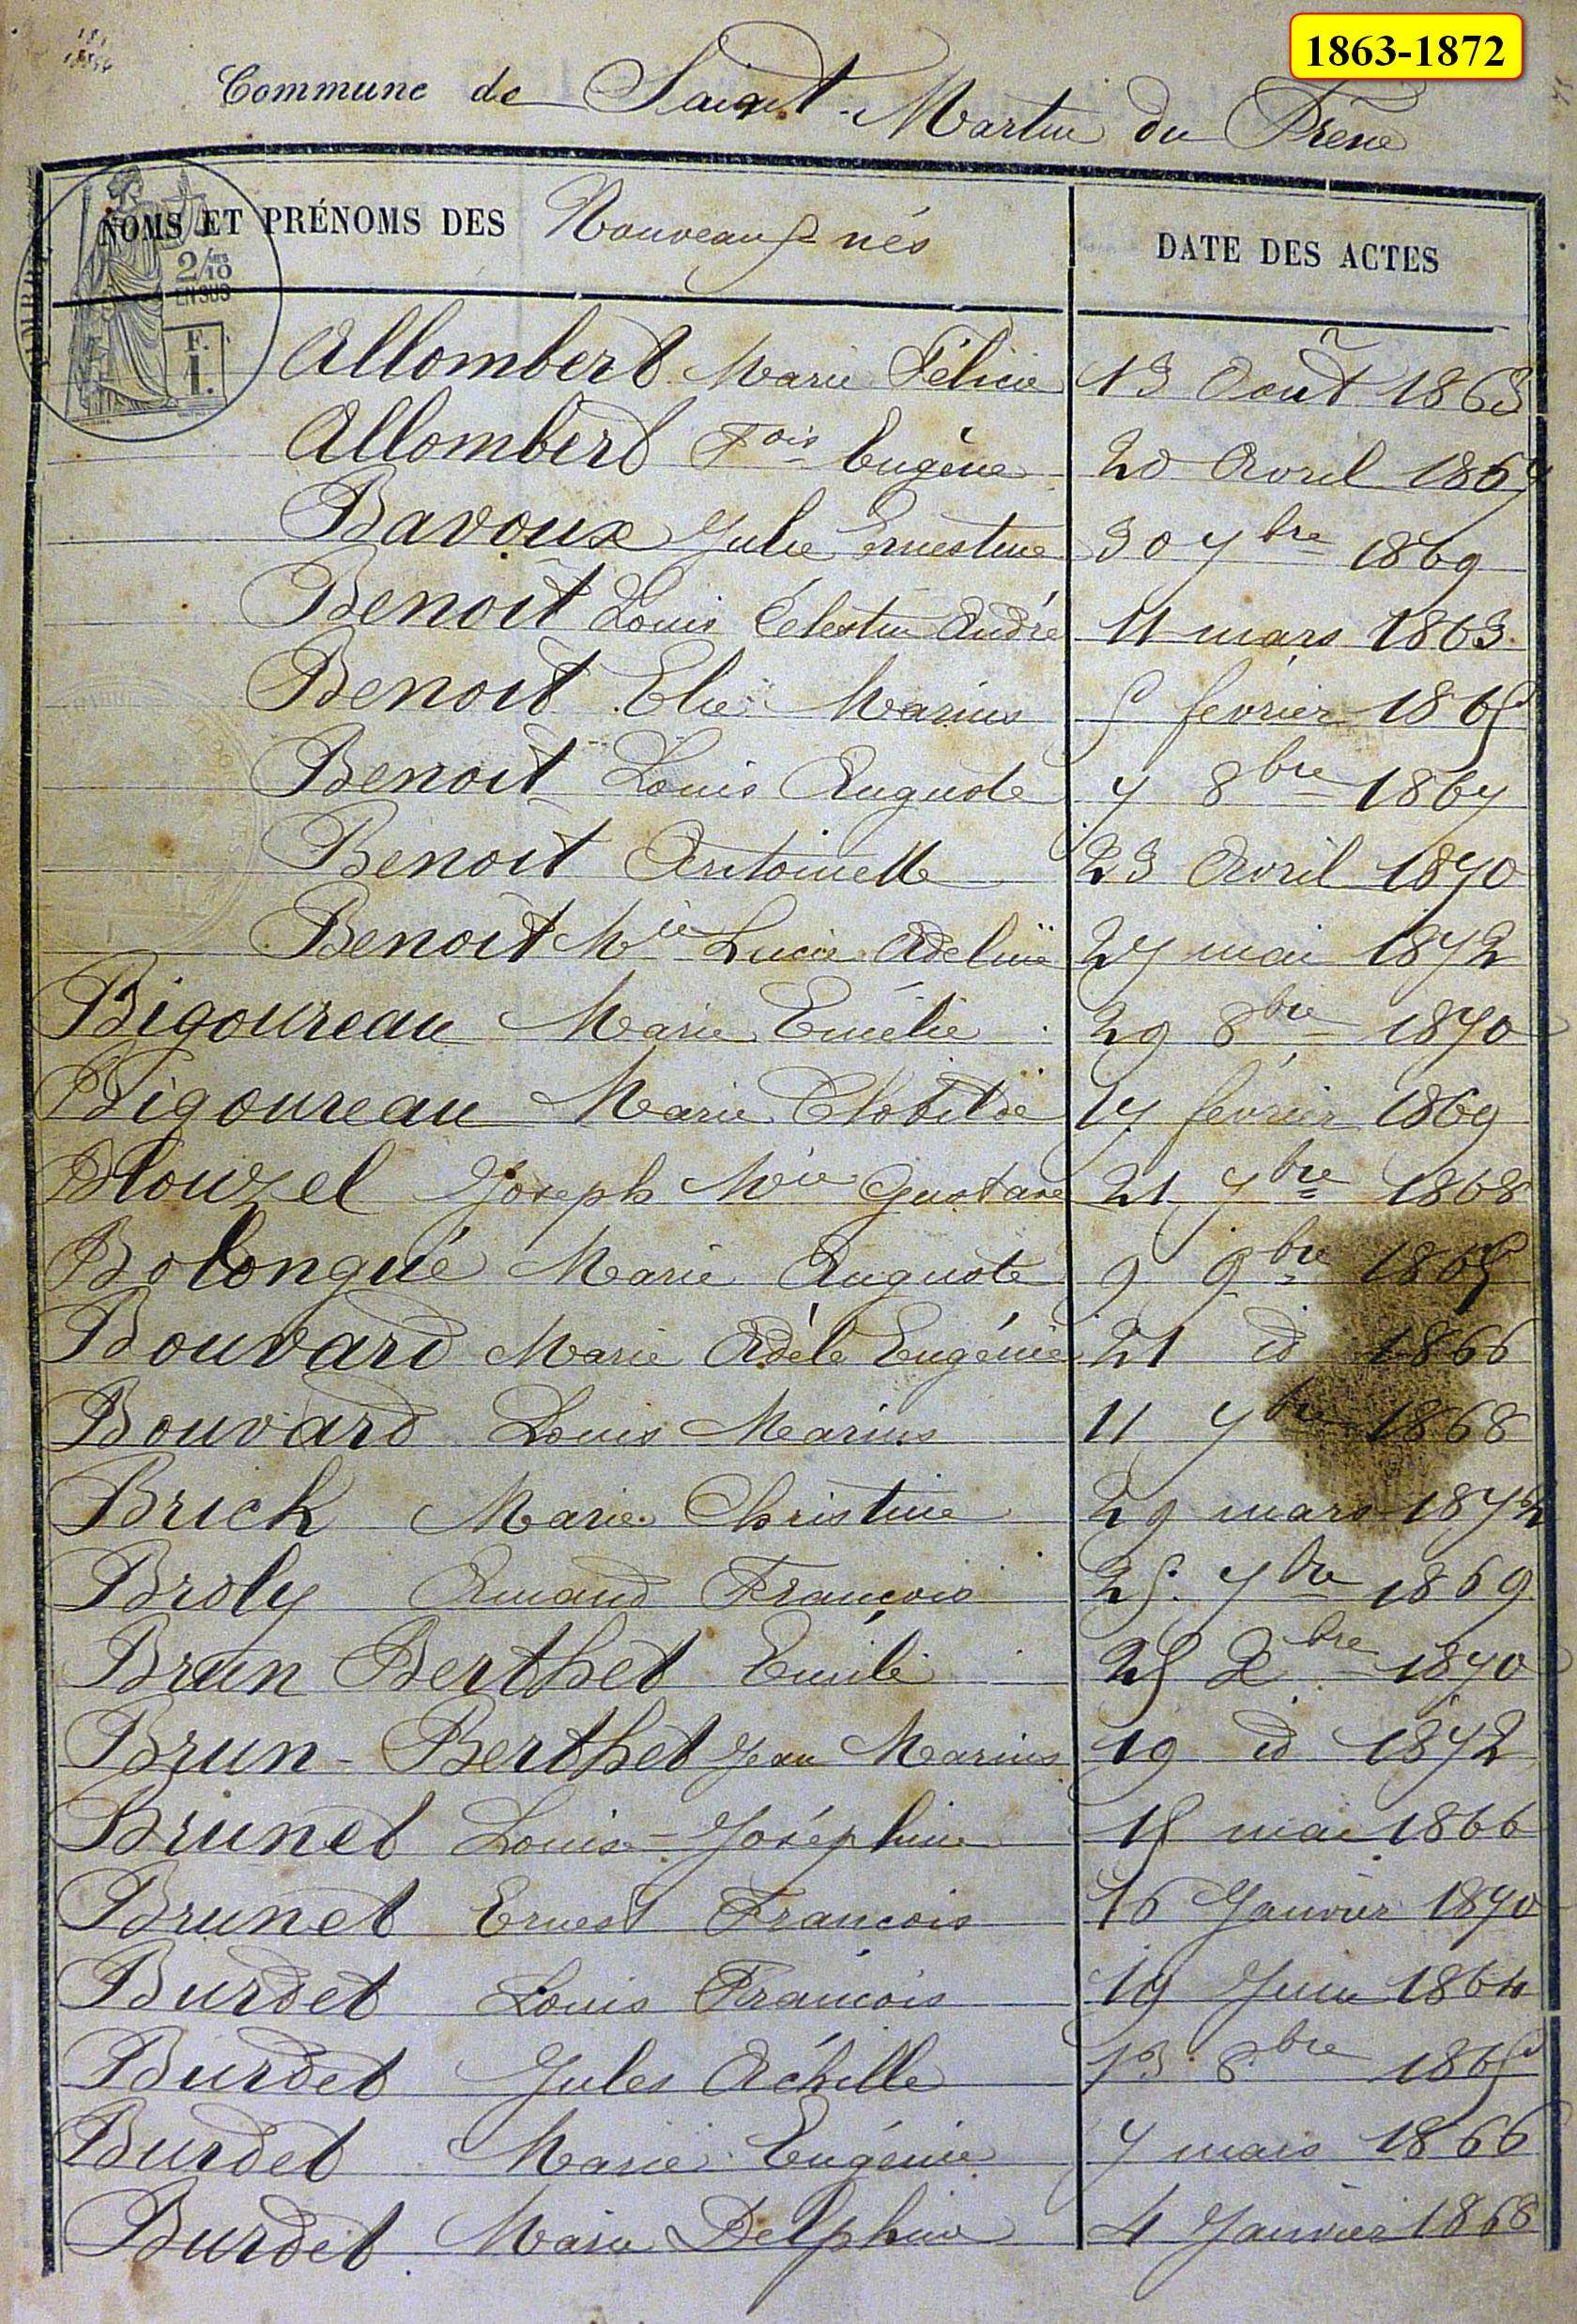 1863-1872
Commune de Saint-Martin du Frêne
NOMS ET PRÉNOMS DES Nouveaux nés
DATE DES ACTES
TIMBRE
2/10
EN SUS
F.
1.
Allombert Marie Félicie 13 Août 1863
Allombert Fois Eugène 20 Avril 1867
Bavoux Julie Ernestine 30 7bre 1869
Benoit Louis Célestin André 11 mars 1863
Benoit Elie Marius 5 février 1865
Benoit Louis Auguste 7 8bre 1867
Benoit Antoinette 23 Avril 1870
Benoit Mie Lucie Adeline 27 mai 1872
Bigoureau Marie Emélie 29 8bre 1870
Bigoureau Marie Clotilde 17 février 1869
Blouzel Joseph Mie Gustave 21 7bre 1868
Bolongué Marie Auguste 9 9bre 1865
Bouvard Marie Adèle Eugénie 21 id 1866
Bouvard Louis Marius 11 7bre 1868
Brick Marie Christine 29 mars 1872
Broly Armand François 25 7bre 1869
Brun Berthet Emile 25 Xbre 1870
Brun-Berthet Jean Marius 19 id 1872
Brunet Louise-Joséphine 15 mai 1866
Brunet Ernest François 16 Janvier 1870
Burdet Louis François 19 Juin 1864
Burdet Jules Achille 13 8bre 1865
Burdet Marie Eugénie 7 mars 1866
Burdet Marie Delphine 4 Janvier 1868